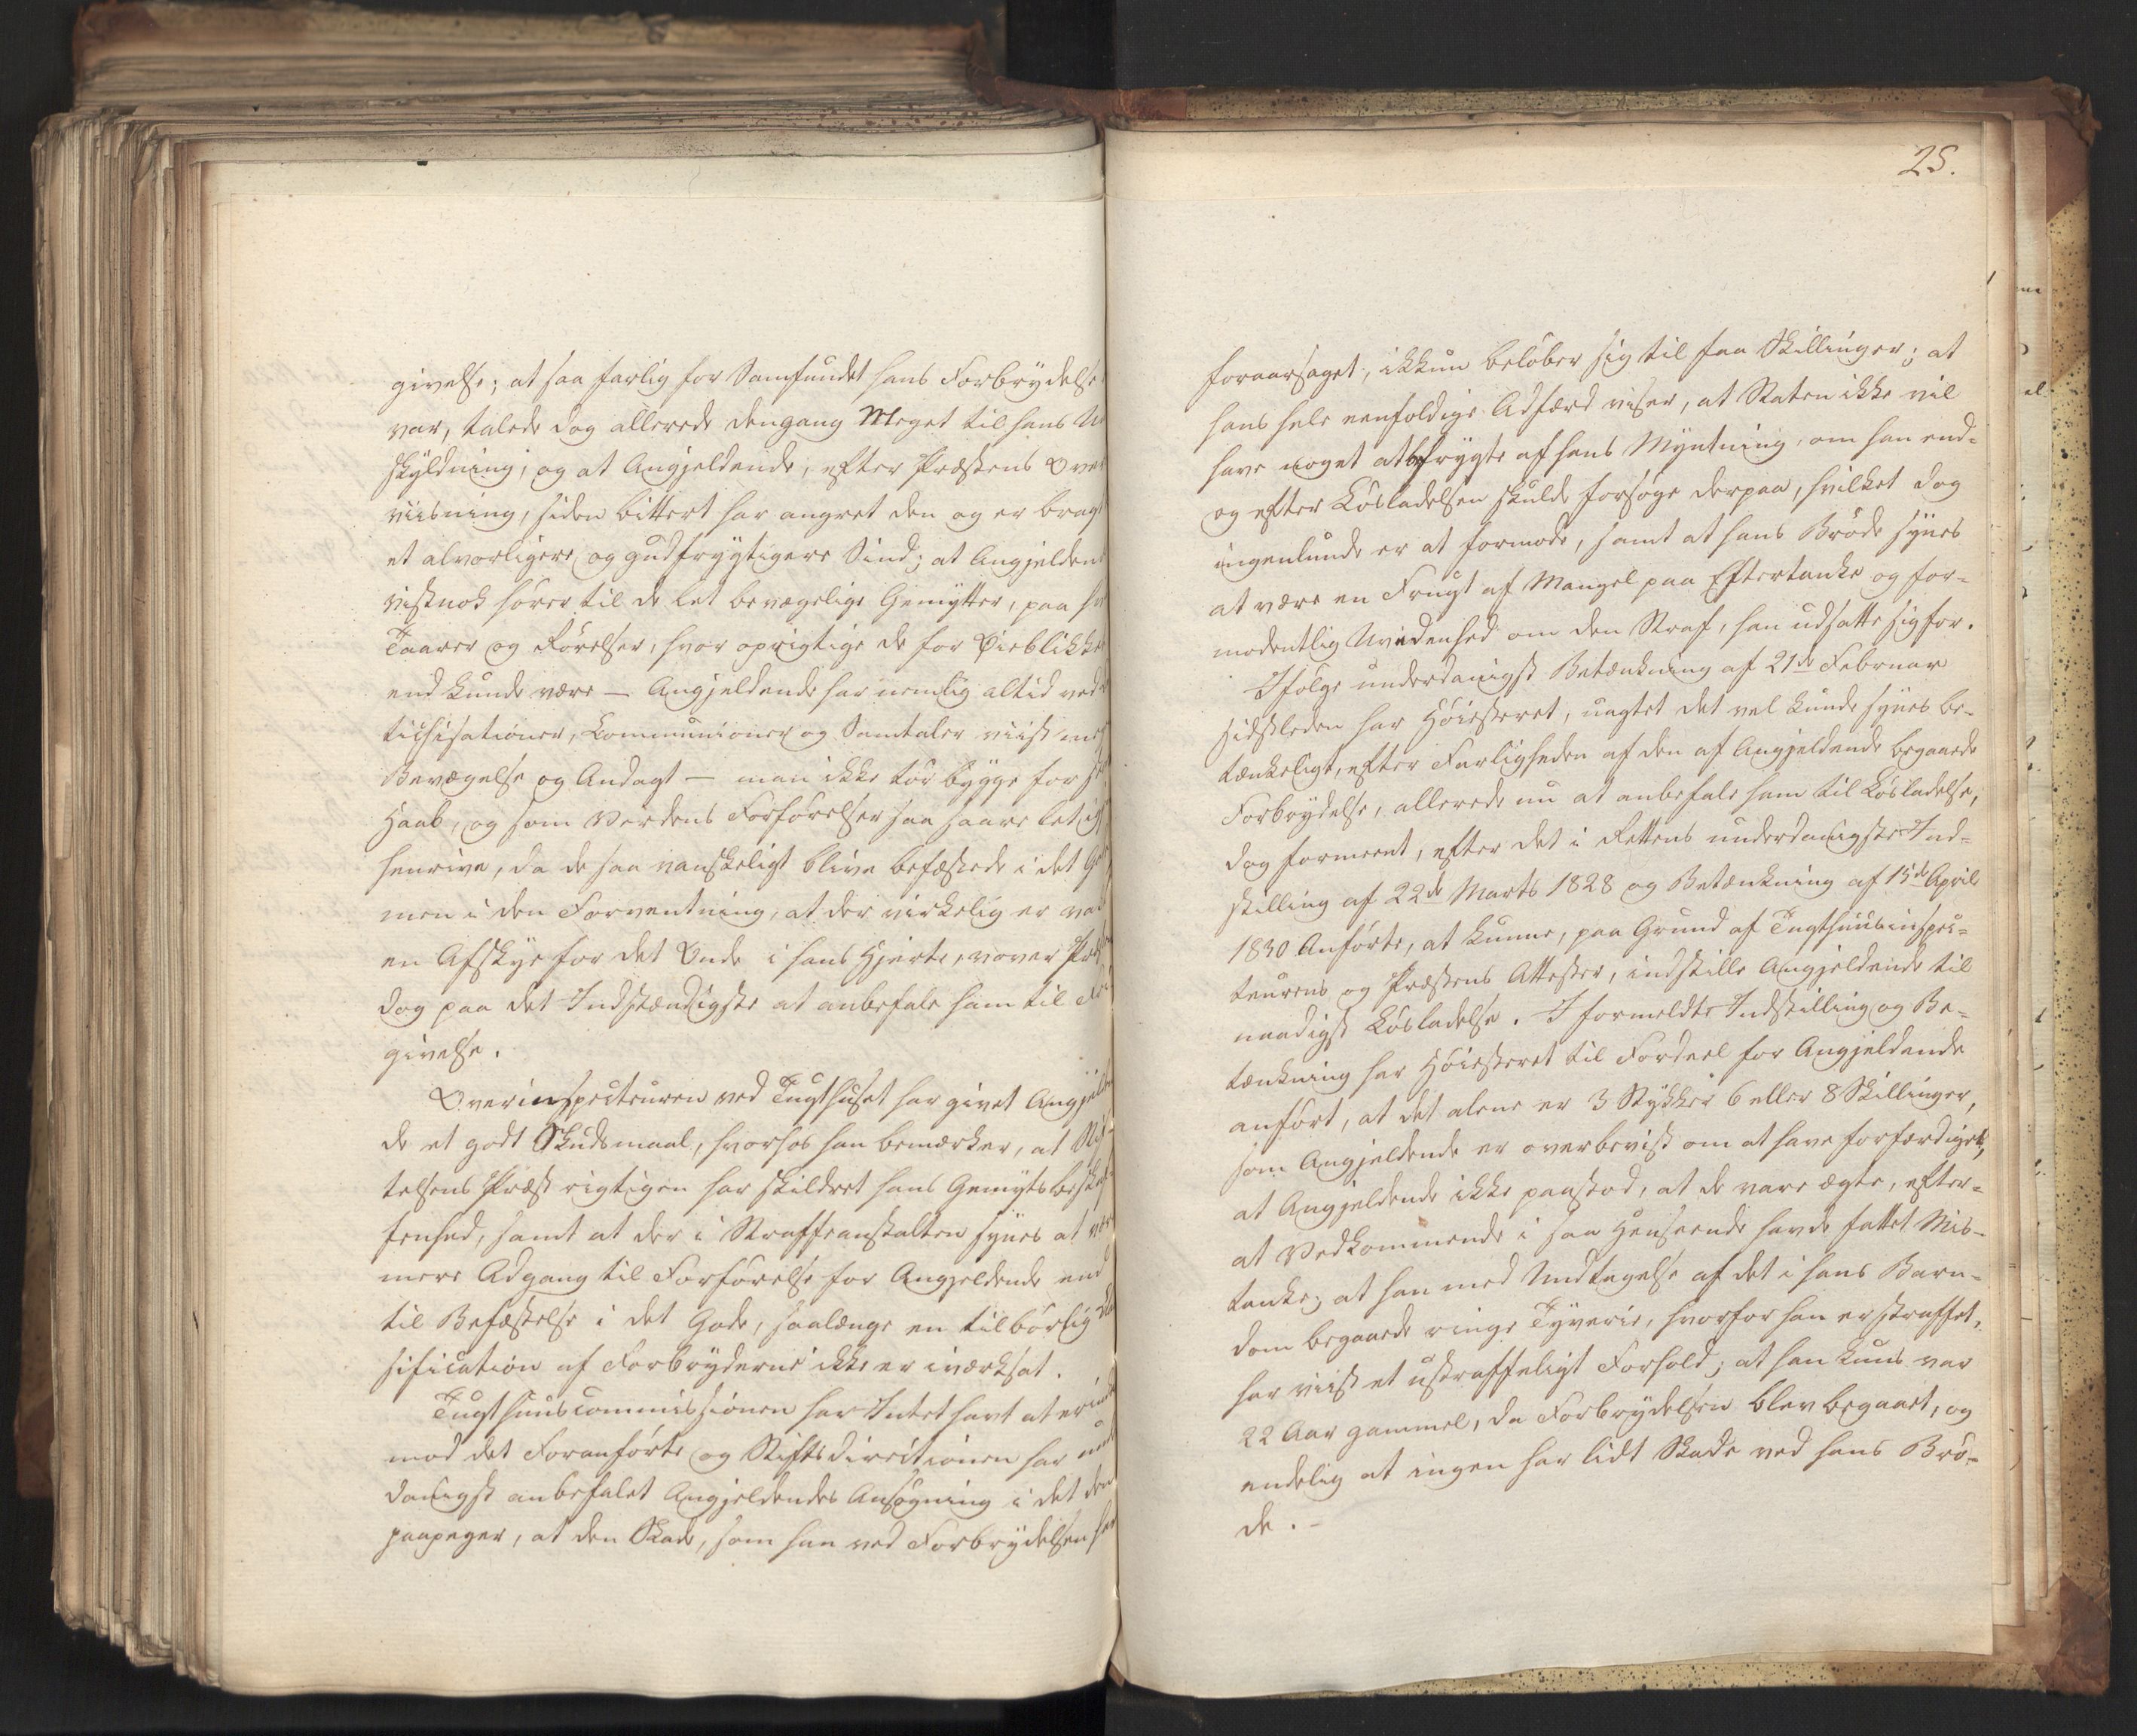 givelse; at saa farlig for Samfundet hans Forbrydelse
var, talede dog allerede dengang Meget til hans U
skyldning; og at Angjeldende, efter Præstens Over
viisning, siden bittert har angret den og er bragt
et alvorligere og gudfrygtigere Sind; at Angjelden
vistnok hører til de let bevægelige Gemytter, paa hv
Taarer og Rørelser, hvor oprigtige de for Øieblikke
end kunde være — Angjeldende har nemlig altid ved
tichisationer, Communioner og Samtaler viist meg
Bevægelse og Andagt — man ikke tør bygge for st
Haab, og som Verdens Forførelser saa saare let ig
henrive, da de saa vanskeligt blive befæstede i det G
men i den Forventning, at der virkelig er va
en Afskye for det Onde i hans Hjerte, vover Præ
dog paa det Indstændigste at anbefale ham til
givelse.
Overinspecteuren ved Tugthuset har givet Angjelde
de et godt Skudsmaal, hvorhos han bemærker, at Stif
telsens Præst rigtigen har skildret hans Gemytsbeskaf
fenhed, samt at der i Straffeanstalten synes at væ
mere Adgang til Forførelse for Angjeldende end
til Befæstelse i det Gode, saalænge en tilbørlig
sification af Forbryderne ikke er iværksat.
Tugthuuscommissionen har Intet havt at erind
mod det Foranførte og Stiftsdirectionen har und
danigst anbefalet Angjeldendes Ansøgning i det den
paapeger, at den Skade, som han ved Forbrydelsen ha
25.
foraarsaget, ikkun beløber sig til faa Skillinger; at
hans hele eenfoldige Adfærd viser, at Staten ikke vil
have noget at befrygte af hans Myntning, om han end=
og efter Løsladelsen skulde forsøge derpaa, hvilket dog
ingenlunde er at formode, samt at hans Brøde synes
at være en Frugt af Mangel paa Eftertanke og for=
modentlig Uvidenhed om den Straf, han udsatte sig for.
Ifølge underdanigst Betænkning af 21de Februar
sidstleden har Høiesteret, uagtet det vel kunde synes be-
tænkeligt, efter Farligheden af den af Angjeldende begaaede
Forbrydelse, allerede nu at anbefale ham til Løsladelse,
dog formeent, efter det i Rettens underdanigste Ind=
stilling af 22de Marts 1828 og Betænkning af 15de April
1830 Anførte, at kunne, paa Grund af Tugthuusinspec=
teurens og Præstens Attester, indstille Angjeldende til
naadigst Løsladelse. I formeldte Indstilling og Be=
tænkning har Høiesteret til Fordeel for Angjeldende
anført, at det alene er 3 Stykker 6 eller 8 Skillinger,
som Angjeldende er overbeviist om at have forfærdiget,
at Angjeldende ikke paastod, at de vare ægte, efter=
at Vedkommende i saa Henseende havde fattet Mis-
tanke; at han med Undtagelse af det i hans Barn=
dom begaaede ringe Tyverie, hvorfor han er straffet,
har viist et ustraffeligt Forhold; at han kuns var
22 Aar gammel, da Forbrydelsen blev begaaet, og
endelig at ingen har lidt Skade ved hans Brø-
de. -